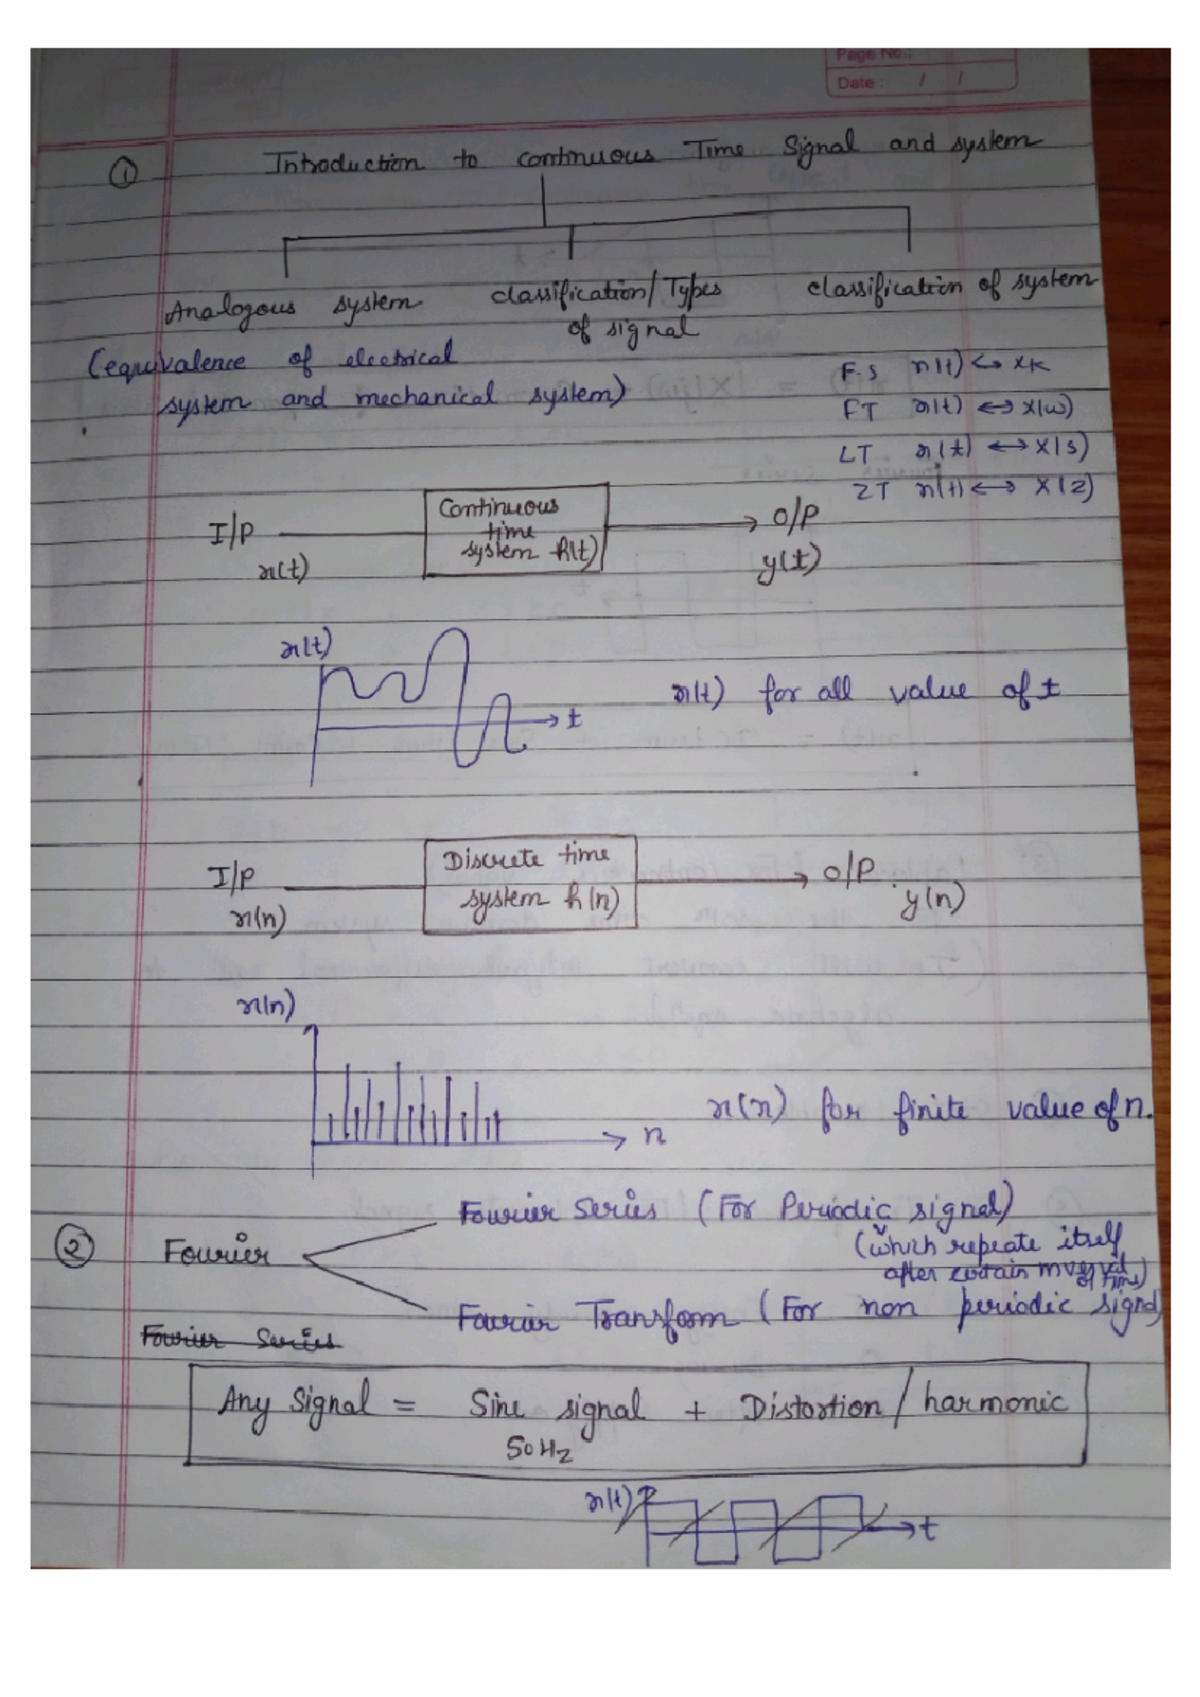 Page No.:
Date : / /
① Introduction to continuous Time Signal and system
Analogous system
classification/Types of signal
classification of system
(equivalence of electrical system and mechanical system)
F.S x(t) ↔ XK
FT x(t) ↔ X(ω)
LT x(t) ↔ X(s)
ZT x(t) ↔ X(z)
I/P
x(t)
Continuous
time
system h(t)
O/P
y(t)
x(t)
t
x(t) for all value of t
I/P
x(n)
Discrete time
system h(n)
O/P
y(n)
x(n)
n
x(n) for finite value of n.
② Fourier
Fourier Series (For Periodic signal)
(which repeate itself
after certain interval
of time)
Fourier Transform (For non periodic signal
Fourier Series
Any Signal = Sine signal + Distortion / harmonic
50Hz
x(t)
t